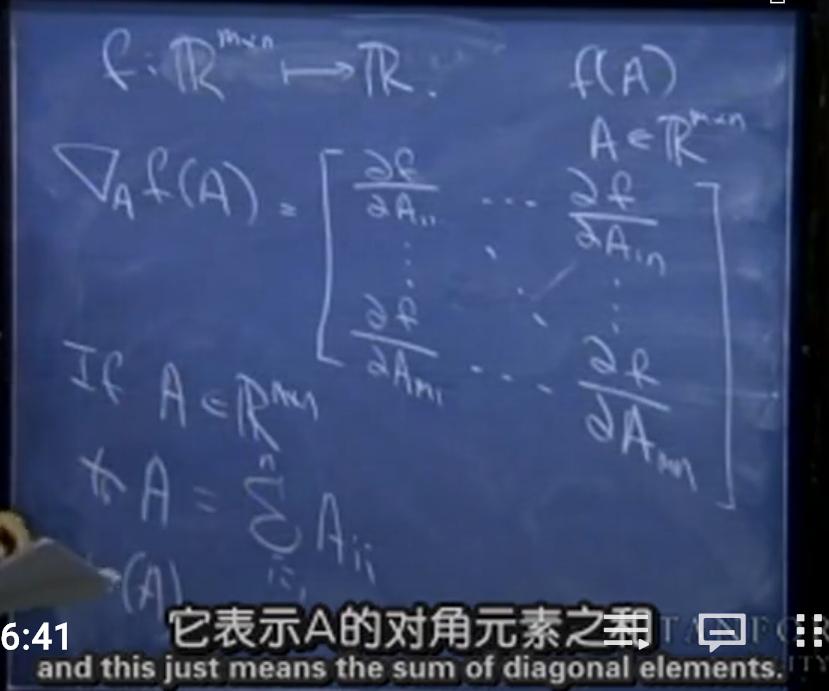 f: ℝ^{m×n} ↦ ℝ.    f(A)
A ∈ ℝ^{m×n}
∇_A f(A) = [ ∂f/∂A_{11} ... ∂f/∂A_{1n}
⋮ ⋱ ⋮
∂f/∂A_{m1} ... ∂f/∂A_{mn} ]
If A ∈ ℝ^{n×n}
tr A = ∑_{i=1}^{n} A_{ii}
(A)
6:41
它表示A的对角元素之和
and this just means the sum of diagonal elements.